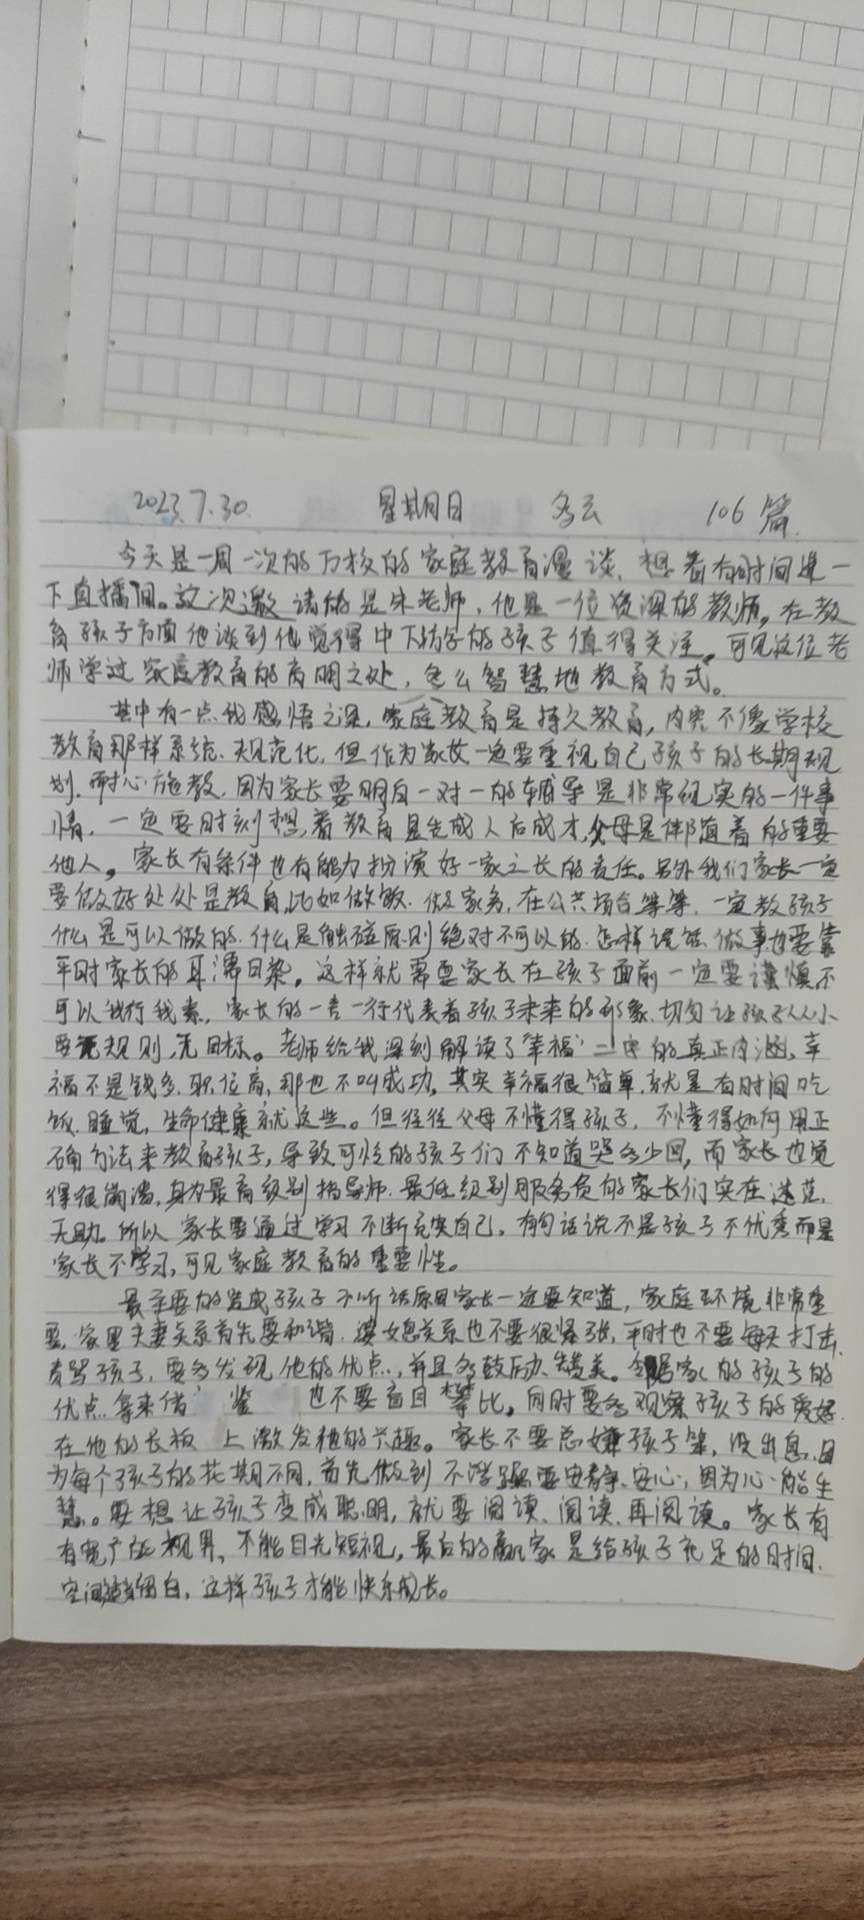 2023.7.30. 星期日 多云 106篇.
今天是一周一次的万校的家庭教育漫谈, 想着有时间进一
下直播间。这次邀请的是朱老师, 他是一位资深的教师。在教
育孩子方面他谈到他觉得中下的孩子值得关注。可见这位老
师学过家庭教育的高明之处, 多么智慧地教育方式。
其中有一点我感悟之深, 家庭教育是持久教育, 内容不像学校
教育那样系统. 规范化, 但作为家长一定要重视自己孩子的长期规
划. 耐心施教. 因为家长要明白一对一的辅导是非常现实的一件事
情. 一定要时刻想着教育是先成人后成才, 父母是伴随着的重要
他人。家长有条件也有能力扮演好一家之长的责任。另外我们家长一定
要做好处处是教育, 比如做饭. 做家务, 在公共场合等等. 一定教孩子
什么是可以做的. 什么是触碰原则绝对不可以的. 怎样说话. 做事也要靠
平时家长的耳濡目染。这样就需要家长在孩子面前一定要谨慎不
可以我行我素, 家长的一言一行代表着孩子未来的形象. 切勿让孩子从小
要无规则, 无目标。老师给我深刻解读了“幸福”二字的真正内涵, 幸
福不是钱多. 职位高, 那也不叫成功, 其实幸福很简单. 就是有时间吃
饭. 睡觉, 生命健康就这些。但往往父母不懂得孩子, 不懂得如何用正
确方法来教育孩子, 导致可怜的孩子们不知道哭多少回, 而家长也觉
得很崩溃, 身为最高级别指导师. 最低级别服务员的家长们实在迷茫.
无助. 所以家长要通过学习不断充实自己, 有句话说不是孩子不优秀而是
家长不学习, 可见家庭教育的重要性。
最主要的造成孩子不听话原因家长一定要知道, 家庭环境非常重
要, 家里夫妻关系首先要和谐. 婆媳关系也不要很紧张, 平时也不要每天打击.
责骂孩子, 要多发现他的优点, 并且多鼓励. 赞美. 家的孩子的
优点拿来借鉴 也不要盲目攀比。同时要多观察孩子的爱好.
在他的长板上激发他的兴趣。家长不要总嫌孩子笨, 没出息, 因
为每个孩子的花期不同, 首先做到不浮躁要安静. 安心, 因为心能生
慧。要想让孩子变成聪明, 就要阅读、阅读、再阅读。家长有
有宽广的视界, 不能目光短视, 最后的赢家是给孩子充足的时间.
空间适当留白, 这样孩子才能快乐成长。